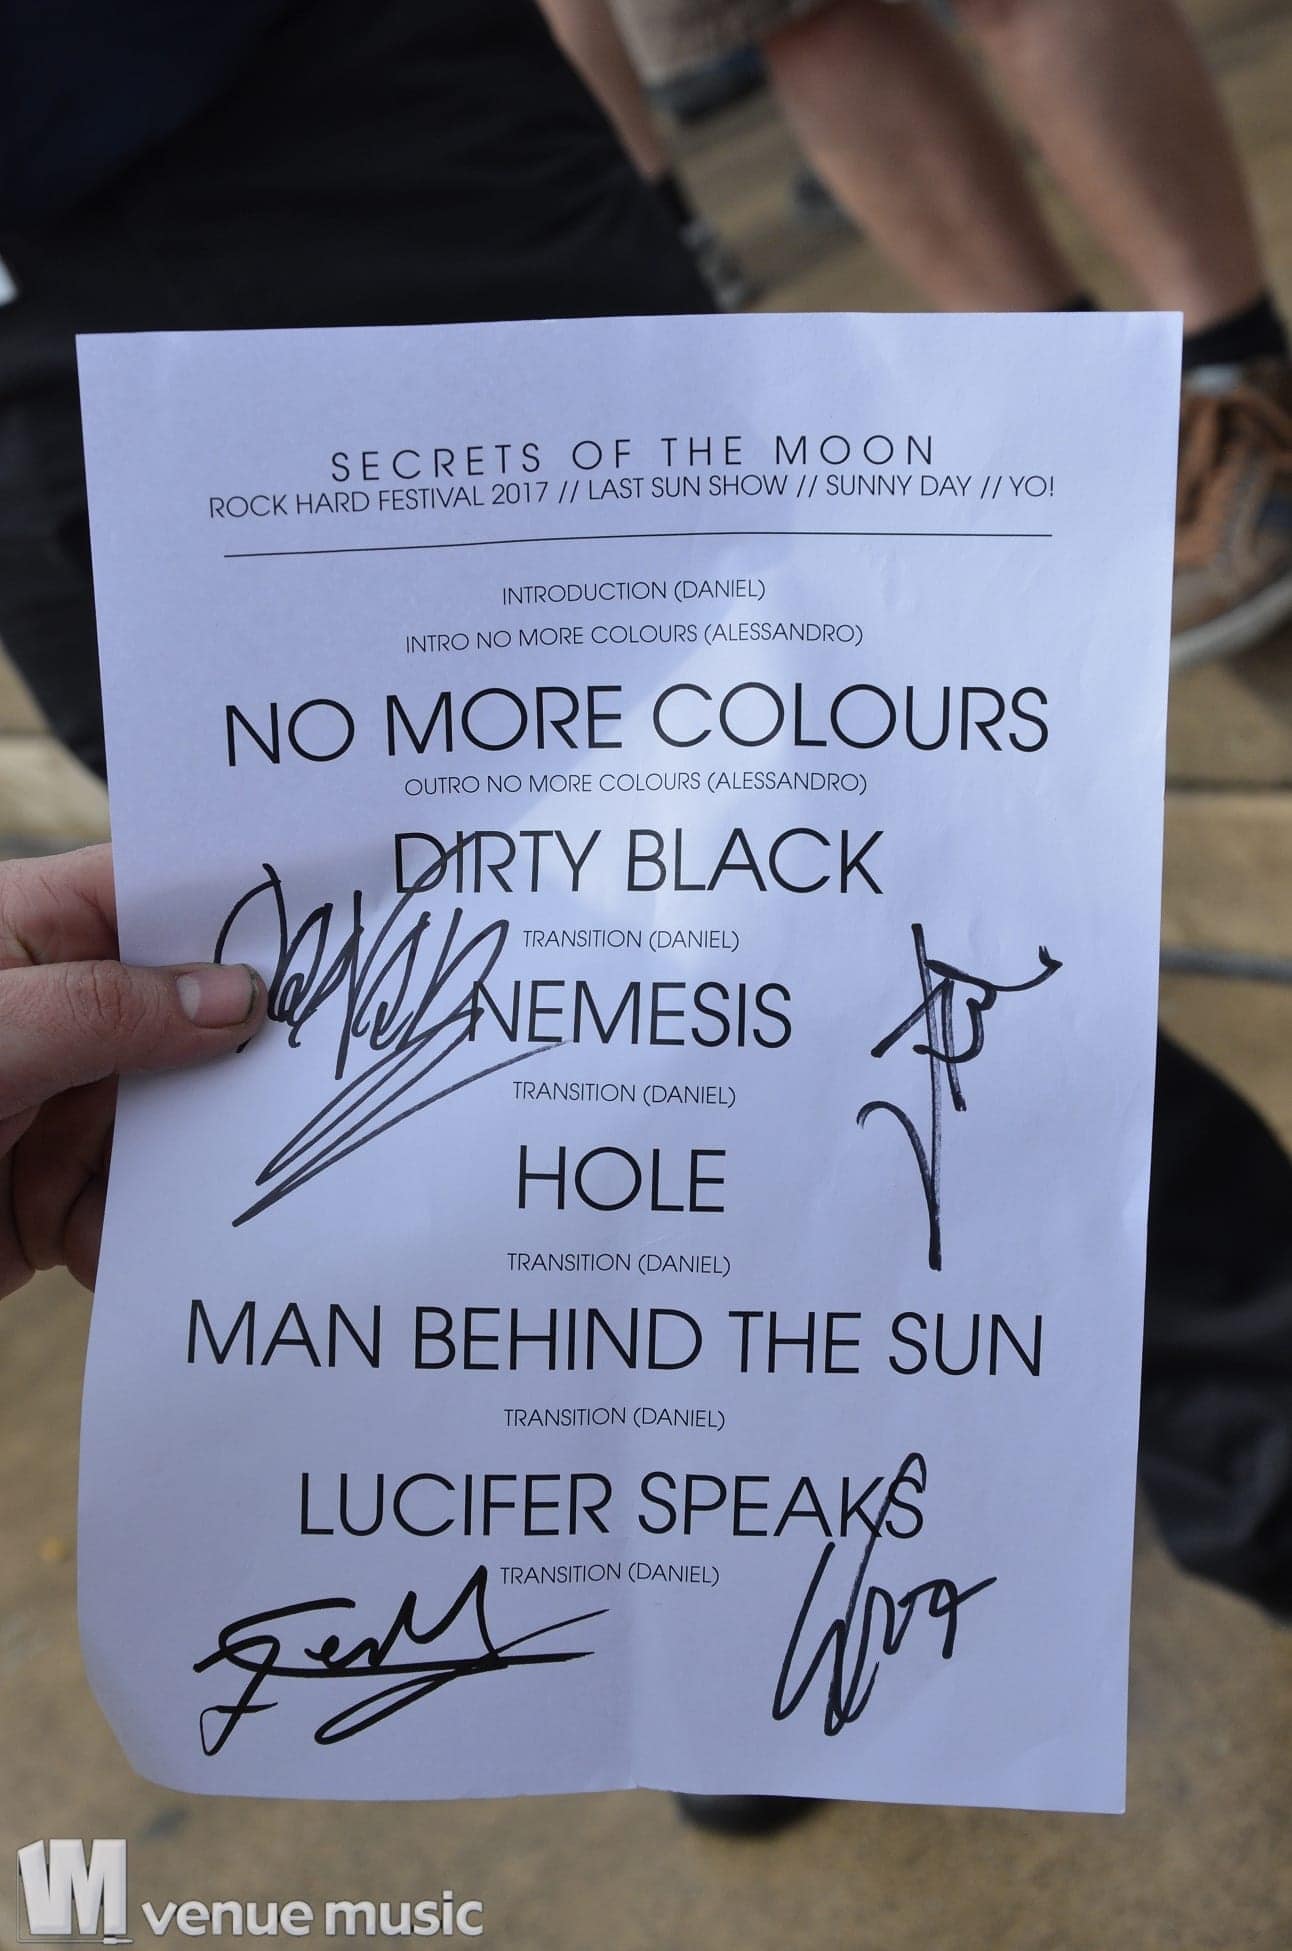 SECRETS OF THE MOON
ROCK HARD FESTIVAL 2017 // LAST SUN SHOW // SUNNY DAY // YO!
INTRODUCTION (DANIEL)
INTRO NO MORE COLOURS (ALESSANDRO)
NO MORE COLOURS
OUTRO NO MORE COLOURS (ALESSANDRO)
DIRTY BLACK
TRANSITION (DANIEL)
NEMESIS
TRANSITION (DANIEL)
HOLE
TRANSITION (DANIEL)
MAN BEHIND THE SUN
TRANSITION (DANIEL)
LUCIFER SPEAKS
TRANSITION (DANIEL)
VM venue music